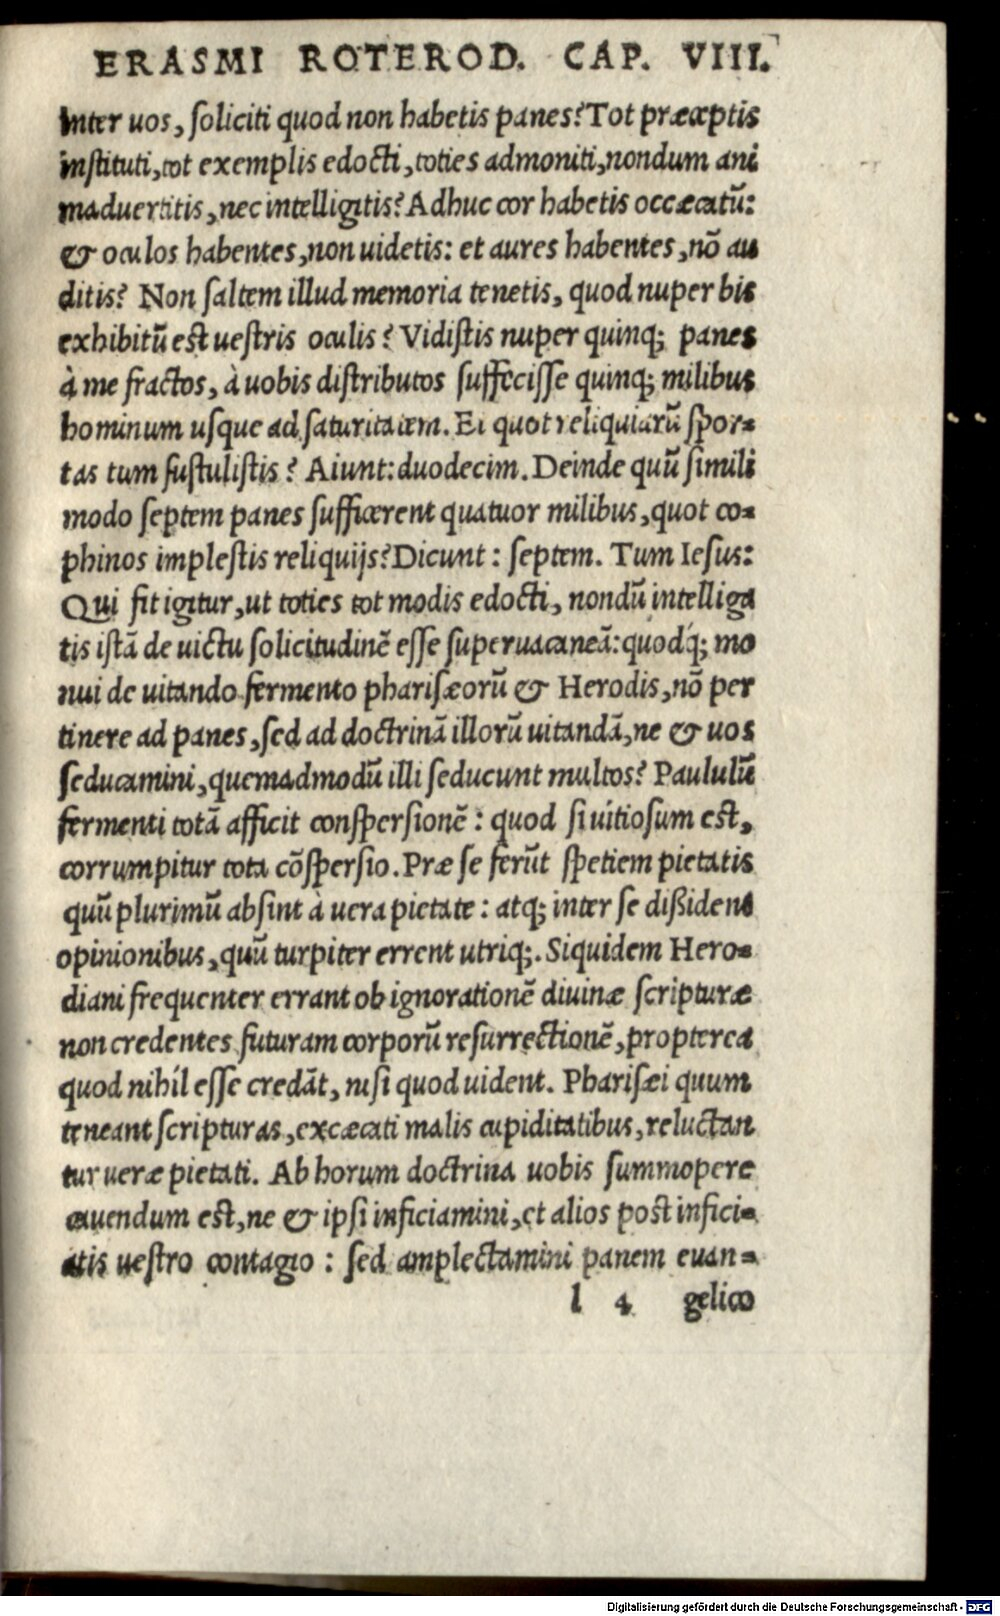 ERASMI ROTEROD. CAP. VIII.
inter uos, soliciti quod non habetis panes? Tot præceptis
instituti, tot exemplis edocti, toties admoniti, nondum ani
maduertitis, nec intelligitis? Adhuc cor habetis occæcatũ:
& oculos habentes, non uidetis: et aures habentes, nõ au
ditis? Non saltem illud memoria tenetis, quod nuper bis
exhibitũ est uestris oculis? Vidistis nuper quinq; panes
à me fractos, à uobis distributos suffecisse quinq; milibus
hominum usque ad saturitatem. Et quot reliquiarũ spor-
tas tum sustulistis? Aiunt: duodecim. Deinde quũ simili
modo septem panes sufficerent quatuor milibus, quot co-
phinos implestis reliquijs? Dicunt: septem. Tum Iesus:
Qui fit igitur, ut toties tot modis edocti, nondũ intelliga
tis istã de uictu solicitudinẽ esse superuacaneã: quodq́; mo
nui de uitando fermento pharisæorũ & Herodis, nõ per
tinere ad panes, sed ad doctrinã illorũ uitandã, ne & uos
seducamini, quemadmodũ illi seducunt multos? Paululũ
fermenti totã afficit conspersionẽ: quod si uitiosum est,
corrumpitur tota cõspersio. Præ se ferũt spetiem pietatis
quũ plurimũ absint à uera pietate: atq; inter se dißident
opinionibus, quũ turpiter errent utriq;. Siquidem Hero-
diani frequenter errant ob ignorationẽ diuinæ scripturæ
non credentes futuram corporũ resurrectionẽ, propterea
quod nihil esse credãt, nisi quod uident. Pharisæi quum
teneant scripturas, excæcati malis cupiditatibus, reluctan
tur ueræ pietati. Ab horum doctrina uobis summopere
cauendum est, ne & ipsi inficiamini, et alios post infici-
atis uestro contagio: sed amplectamini panem euan-
l 4 gelico
Digitalisierung gefördert durch die Deutsche Forschungsgemeinschaft - DFG